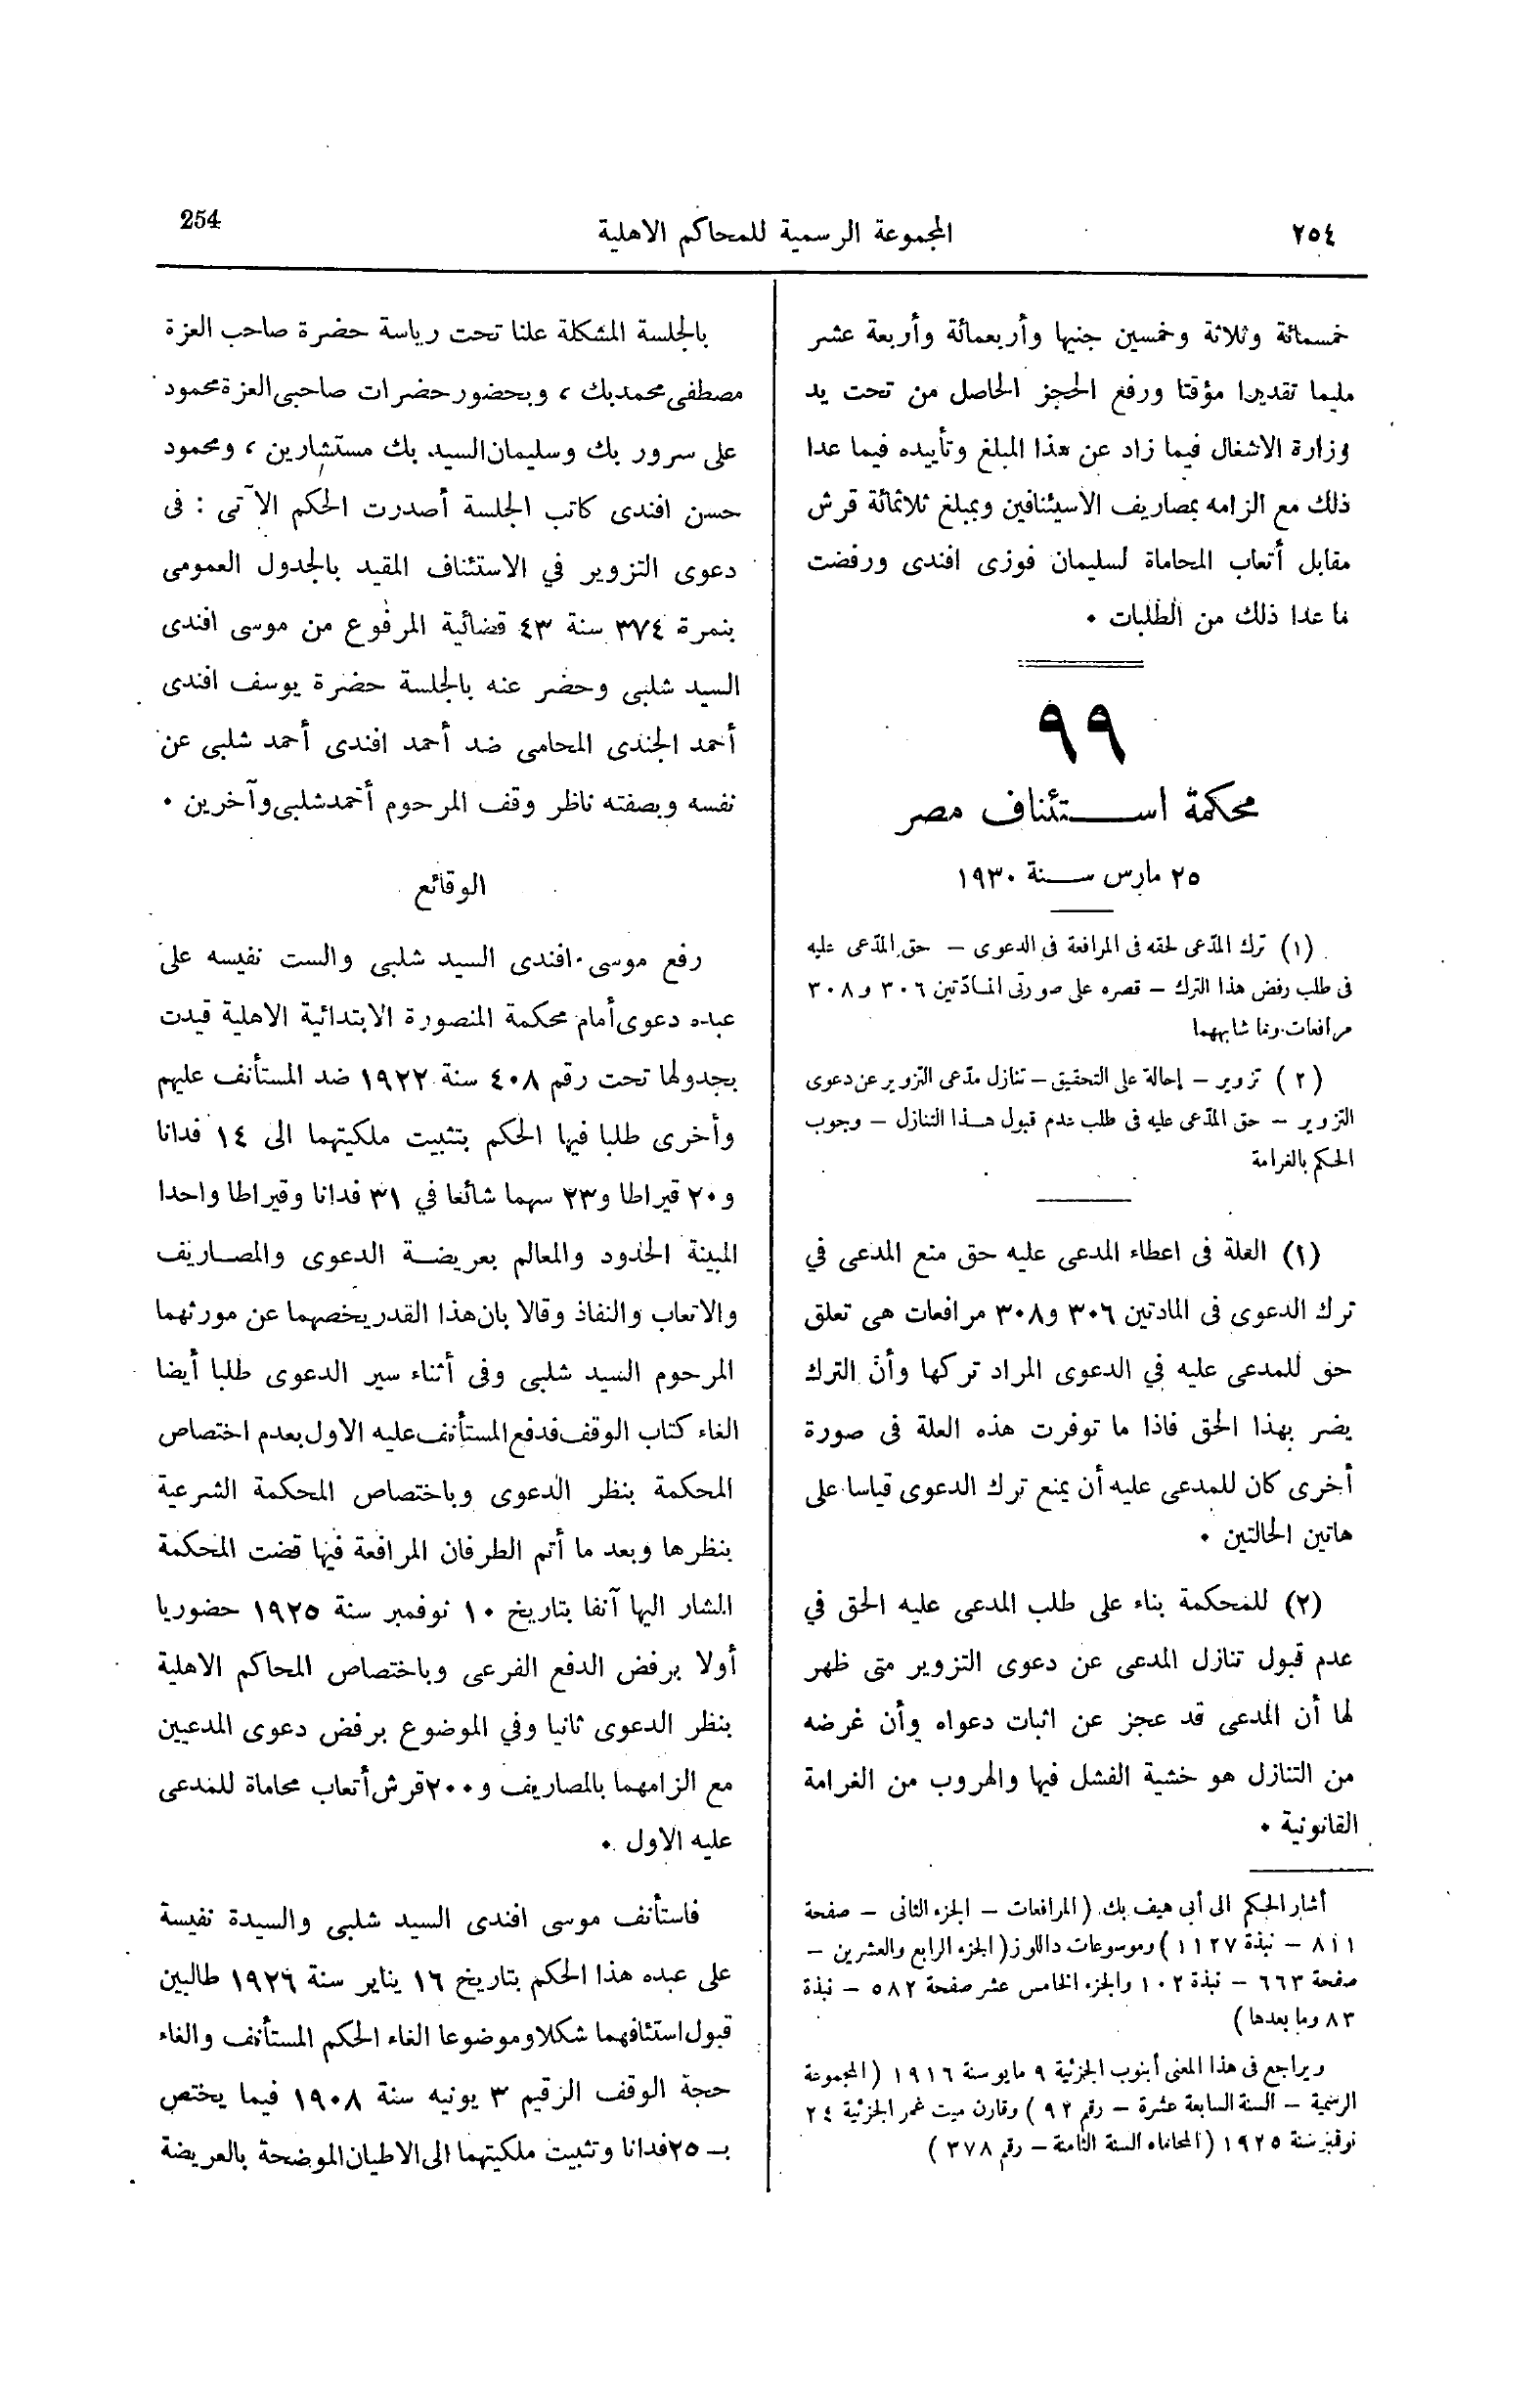 ٢٥٤
المجموعة الرسمية للمحاكم الاهلية
254
خمسمائة وثلاثة وخمسين جنيها وأربعمائة وأربعة عشر
مليما تقديرا مؤقتا ورفع الحجز الحاصل من تحت يد
وزارة الاشغال فيما زاد عن هذا المبلغ وتأييده فيما عدا
ذلك مع الزامه بمصاريف الاسئنافين وبمبلغ ثلاثمائة قرش
مقابل أتعاب المحاماة لسليمان فوزى افندى ورفضت
ما عدا ذلك من الطلبات .
٩٩
محكمة استئناف مصر
٢٥ مارس سنة ١٩٣٠
(١) ترك المدّعى لحقه فى المرافعة فى الدعوى – حق المدّعى عليه
فى طلب رفض هذا الترك – قصره على صورتى المادّتين ٣٠٦ و٣٠٨
مرافعات وما شابههما
(٢) تزوير – إحالة على التحقيق – تنازل مدّعى التزوير عن دعوى
التزوير – حق المدّعى عليه فى طلب عدم قبول هذا التنازل – وجوب
الحكم بالغرامة
(١) العلة فى اعطاء المدعى عليه حق منع المدعى في
ترك الدعوى فى المادتين ٣٠٦ و٣٠٨ مرافعات هى تعلق
حق للمدعى عليه في الدعوى المراد تركها وأن الترك
يضر بهذا الحق فاذا ما توفرت هذه العلة فى صورة
أخرى كان للمدعى عليه أن يمنع ترك الدعوى قياسا على
هاتين الحالتين .
(٢) للمحكمة بناء على طلب المدعى عليه الحق في
عدم قبول تنازل المدعى عن دعوى التزوير متى ظهر
لها أن المدعى قد عجز عن اثبات دعواه وأن غرضه
من التنازل هو خشية الفشل فيها والهروب من الغرامة
القانونية .
أشار الحكم الى أبى هيف بك (المرافعات – الجزء الثانى – صفحة
٨١١ – نبذة ١١٢٧) وموسوعات داللوز (الجزء الرابع والعشرين –
صفحة ٦٦٣ – نبذة ١٠٢ والجزء الخامس عشر صفحة ٥٨٢ – نبذة
٨٣ وما بعدها)
ويراجع فى هذا المعنى أبنوب الجزئية ٩ مايو سنة ١٩١٦ (المجموعة
الرسمية – السنة السابعة عشرة – رقم ٩٢) وقارن ميت غمر الجزئية ٢٤
نوفمبر سنة ١٩٢٥ (المحاماه السنة الثامنة – رقم ٣٧٨)
بالجلسة المشكلة علنا تحت رياسة حضرة صاحب العزة
مصطفى محمد بك ، وبحضور حضرات صاحبى العزة محمود
على سرور بك وسليمان السيد بك مستشارين ، ومحمود
حسن افندى كاتب الجلسة أصدرت الحكم الآتى : فى
دعوى التزوير في الاستئناف المقيد بالجدول العمومى
بنمرة ٣٧٤ سنة ٤٣ قضائية المرفوع من موسى افندى
السيد شلبى وحضر عنه بالجلسة حضرة يوسف افندى
أحمد الجندى المحامى ضد أحمد افندى أحمد شلبى عن
نفسه وبصفته ناظر وقف المرحوم أحمد شلبى وآخرين .
الوقائع
رفع موسى افندى السيد شلبى والست نفيسه على
عبده دعوى أمام محكمة المنصورة الابتدائية الاهلية قيدت
بجدولها تحت رقم ٤٠٨ سنة ١٩٢٢ ضد المستأنف عليهم
وأخرى طلبا فيها الحكم بتثبيت ملكيتهما الى ١٤ فدانا
و٢٠ قيراطا و٢٣ سهما شائعا في ٣١ فدانا وقيراطا واحدا
المبينة الحدود والمعالم بعريضة الدعوى والمصاريف
والاتعاب والنفاذ وقالا بان هذا القدر يخصهما عن مورثهما
المرحوم السيد شلبى وفى أثناء سير الدعوى طلبا أيضا
الغاء كتاب الوقف فدفع المستأنف عليه الاول بعدم اختصاص
المحكمة بنظر الدعوى وباختصاص المحكمة الشرعية
بنظرها وبعد ما أتم الطرفان المرافعة فيها قضت المحكمة
المشار اليها آنفا بتاريخ ١٠ نوفمبر سنة ١٩٢٥ حضوريا
أولا برفض الدفع الفرعى وباختصاص المحاكم الاهلية
بنظر الدعوى ثانيا وفي الموضوع برفض دعوى المدعيين
مع الزامهما بالمصاريف و٢٠٠ قرش أتعاب محاماة للمدعى
عليه الاول .
فاستأنف موسى افندى السيد شلبى والسيدة نفيسة
على عبده هذا الحكم بتاريخ ١٦ يناير سنة ١٩٢٦ طالبين
قبول استئنافهما شكلا وموضوعا الغاء الحكم المستأنف والغاء
حجة الوقف الرقيم ٣ يونيه سنة ١٩٠٨ فيما يختص
بـ ٢٥ فدانا وتثبيت ملكيتهما الى الاطيان الموضحة بالعريضة